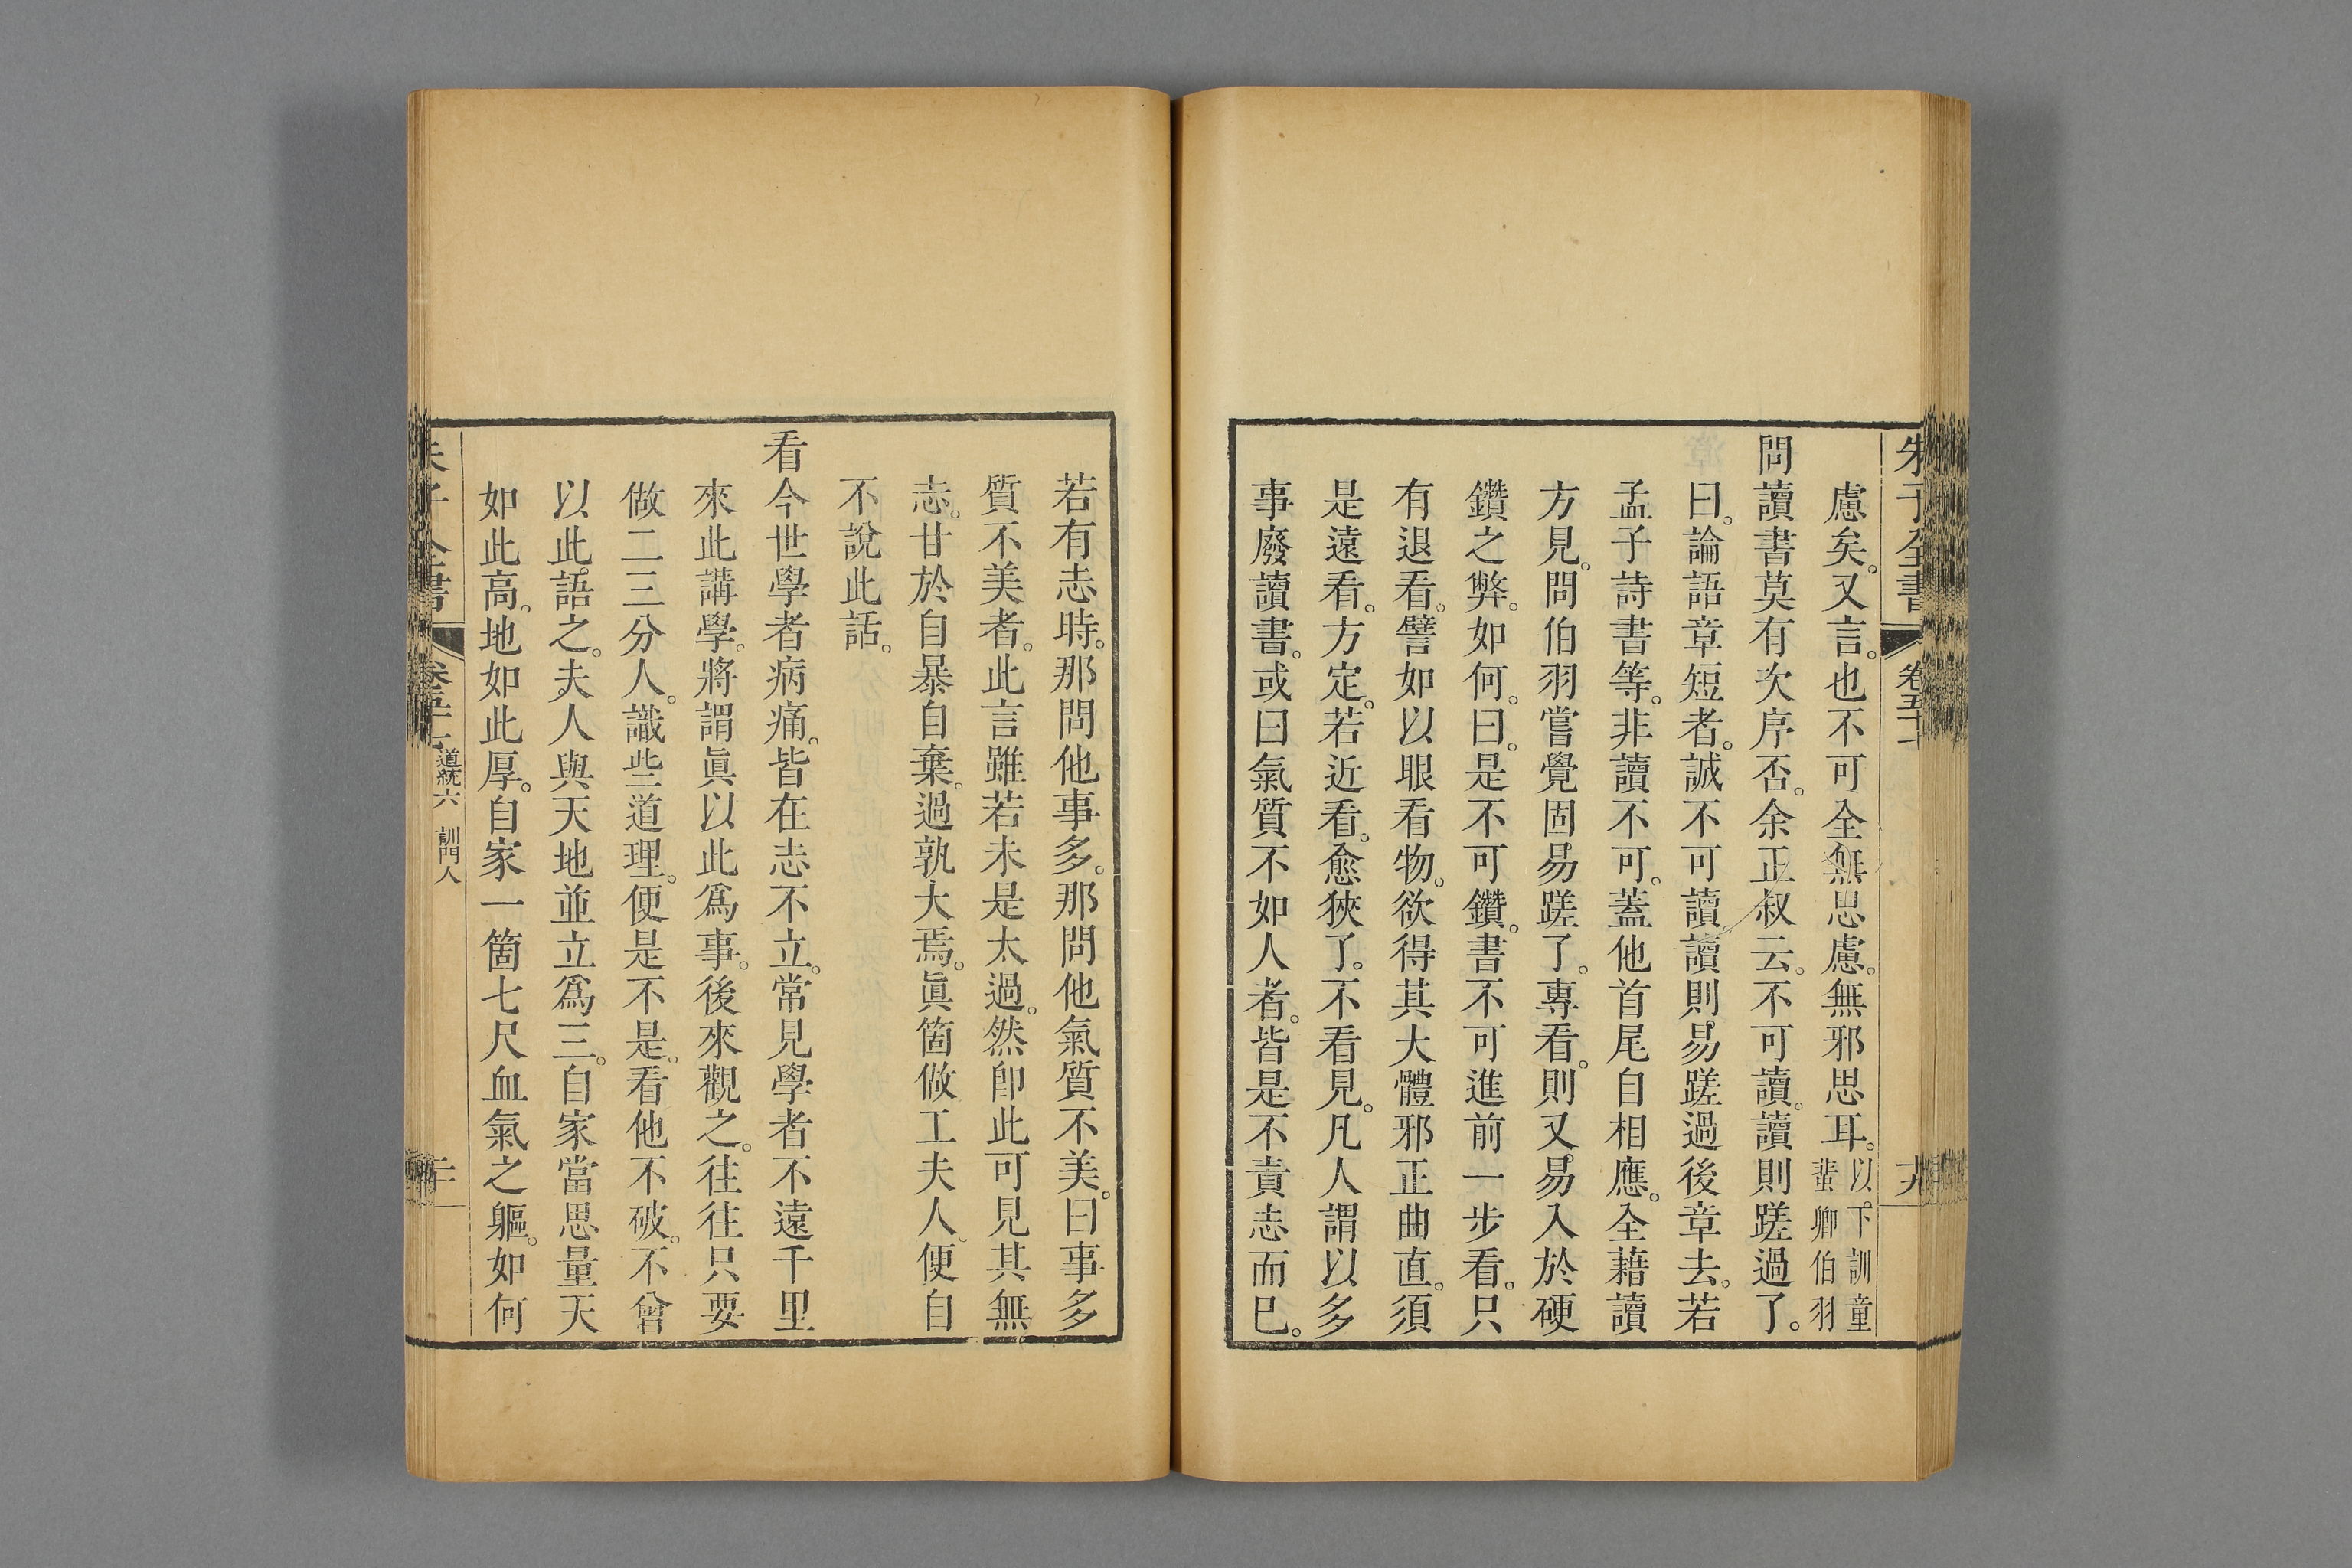 朱子全書 卷五十
慮矣。又言。也不可全無思慮。無邪思耳。以下訓童
蜚卿伯羽
問讀書莫有次序否。余正叔云。不可讀。讀則蹉過了。
曰。論語章短者。誠不可讀。讀則易蹉過後章去。若
孟子詩書等。非讀不可。蓋他首尾自相應。全藉讀
方見。問伯羽嘗覺固易蹉了。專看。則又易入於硬
鑽之弊。如何。曰。是不可鑽。書不可進前一步看。只
有退看。譬如以眼看物。欲得其大體邪正曲直。須
是遠看。方定。若近看。愈狹了。不看見。凡人謂以多
事廢讀書。或曰氣質不如人者。皆是不責志而已。
若有志時。那問他事多。那問他氣質不美。曰事多
質不美者。此言雖若未是太過。然卽此可見其無
志。甘於自暴自棄。過孰大焉。眞箇做工夫人。便自
不說此話。
看今世學者病痛。皆在志不立。常見學者不遠千里
來此講學。將謂眞以此爲事。後來觀之。往往只要
做二三分人。識些道理。便是不是。看他不破。不曾
以此語之。夫人與天地並立爲三。自家當思量天
如此高。地如此厚。自家一箇七尺血氣之軀。如何
道統六 訓門人